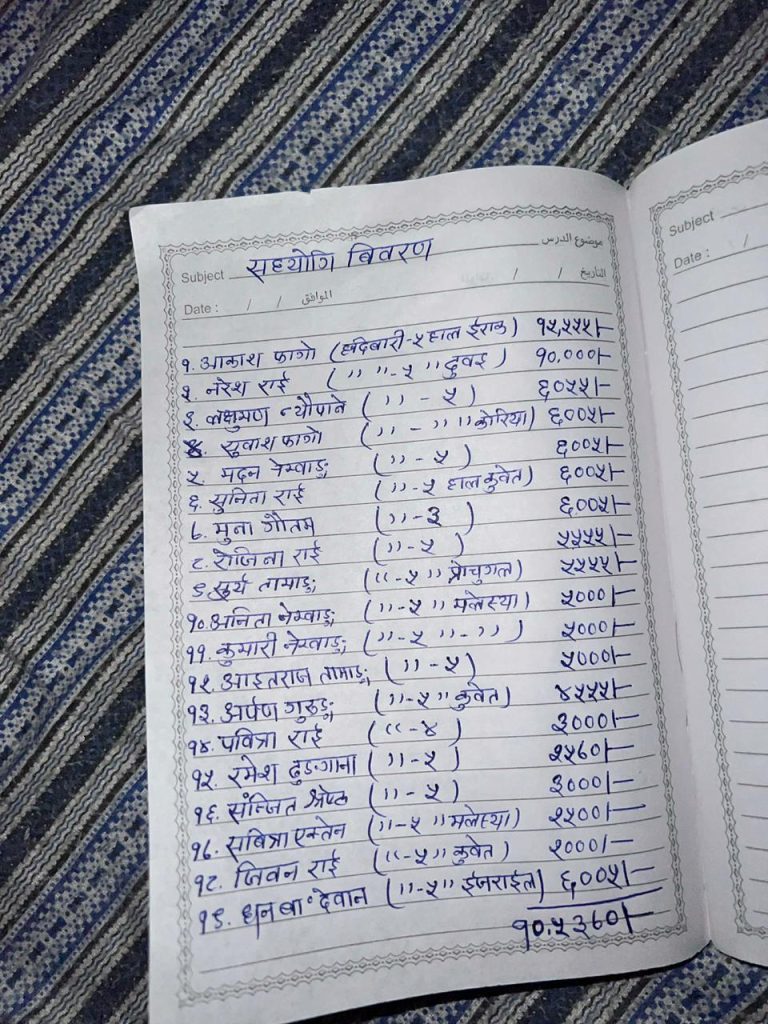 Subject सहयोगि बिवरण موضوع الدرس
Date : / / الموافق / / التاريخ
१. आकाश फागो (हदिबारी-५ हाल ईराक) १५,५५५/-
२. नरेश राई ( ,, ,, - ५ ,, दुवई ) १०,०००/-
३. लक्षुमण न्यौपाने ( ,, - ५ ) ६०५५/-
४. सुवाश फागो ( ,, - ,, ,, कोरिया) ६००५/-
५. मदन नेम्वाङ्ग ( ,, - ५ ) ६००५/-
६. सुनिता राई ( ,, - ५ हाल कुवेत) ६००५/-
७. मुना गौतम ( ,, - ३ ) ६००५/-
८. रोजिना राई ( ,, - ५ ) ५५५५/-
९. सुर्य तामाङ्ग ( ,, - ५ ,, प्रोचुगल) ५५५५/-
१०. अनिता नेम्वाङ्ग ( ,, - ५ ,, मलेस्या) ५०००/-
११. कुमारी नेम्वाङ्ग ( ,, - ५ ,, - ,, ) ५०००/-
१२. आइतराज तामाङ्ग ( ,, - ५ ) ५०००/-
१३. अर्पण गुरुङ्ग ( ,, - ५ ,, कुवेत) ४५५५/-
१४. पवित्रा राई ( ,, - ४ ) ३०००/-
१५. रमेश ढुङ्गाना ( ,, - ५ ) २५७०/-
१६. संन्जित श्रेष्ठ ( ,, - ५ ) ३०००/-
१७. सबित्रा एक्तेन ( ,, - ५ ,, मलेस्या) २५००/-
१८. जिवन राई ( ,, - ५ ,, कुवेत) २०००/-
१९. धन बा॰ देवान ( ,, - ५ ,, ईजराईल) ६००५/-
१०,५३७०/-
Subject
Date : /